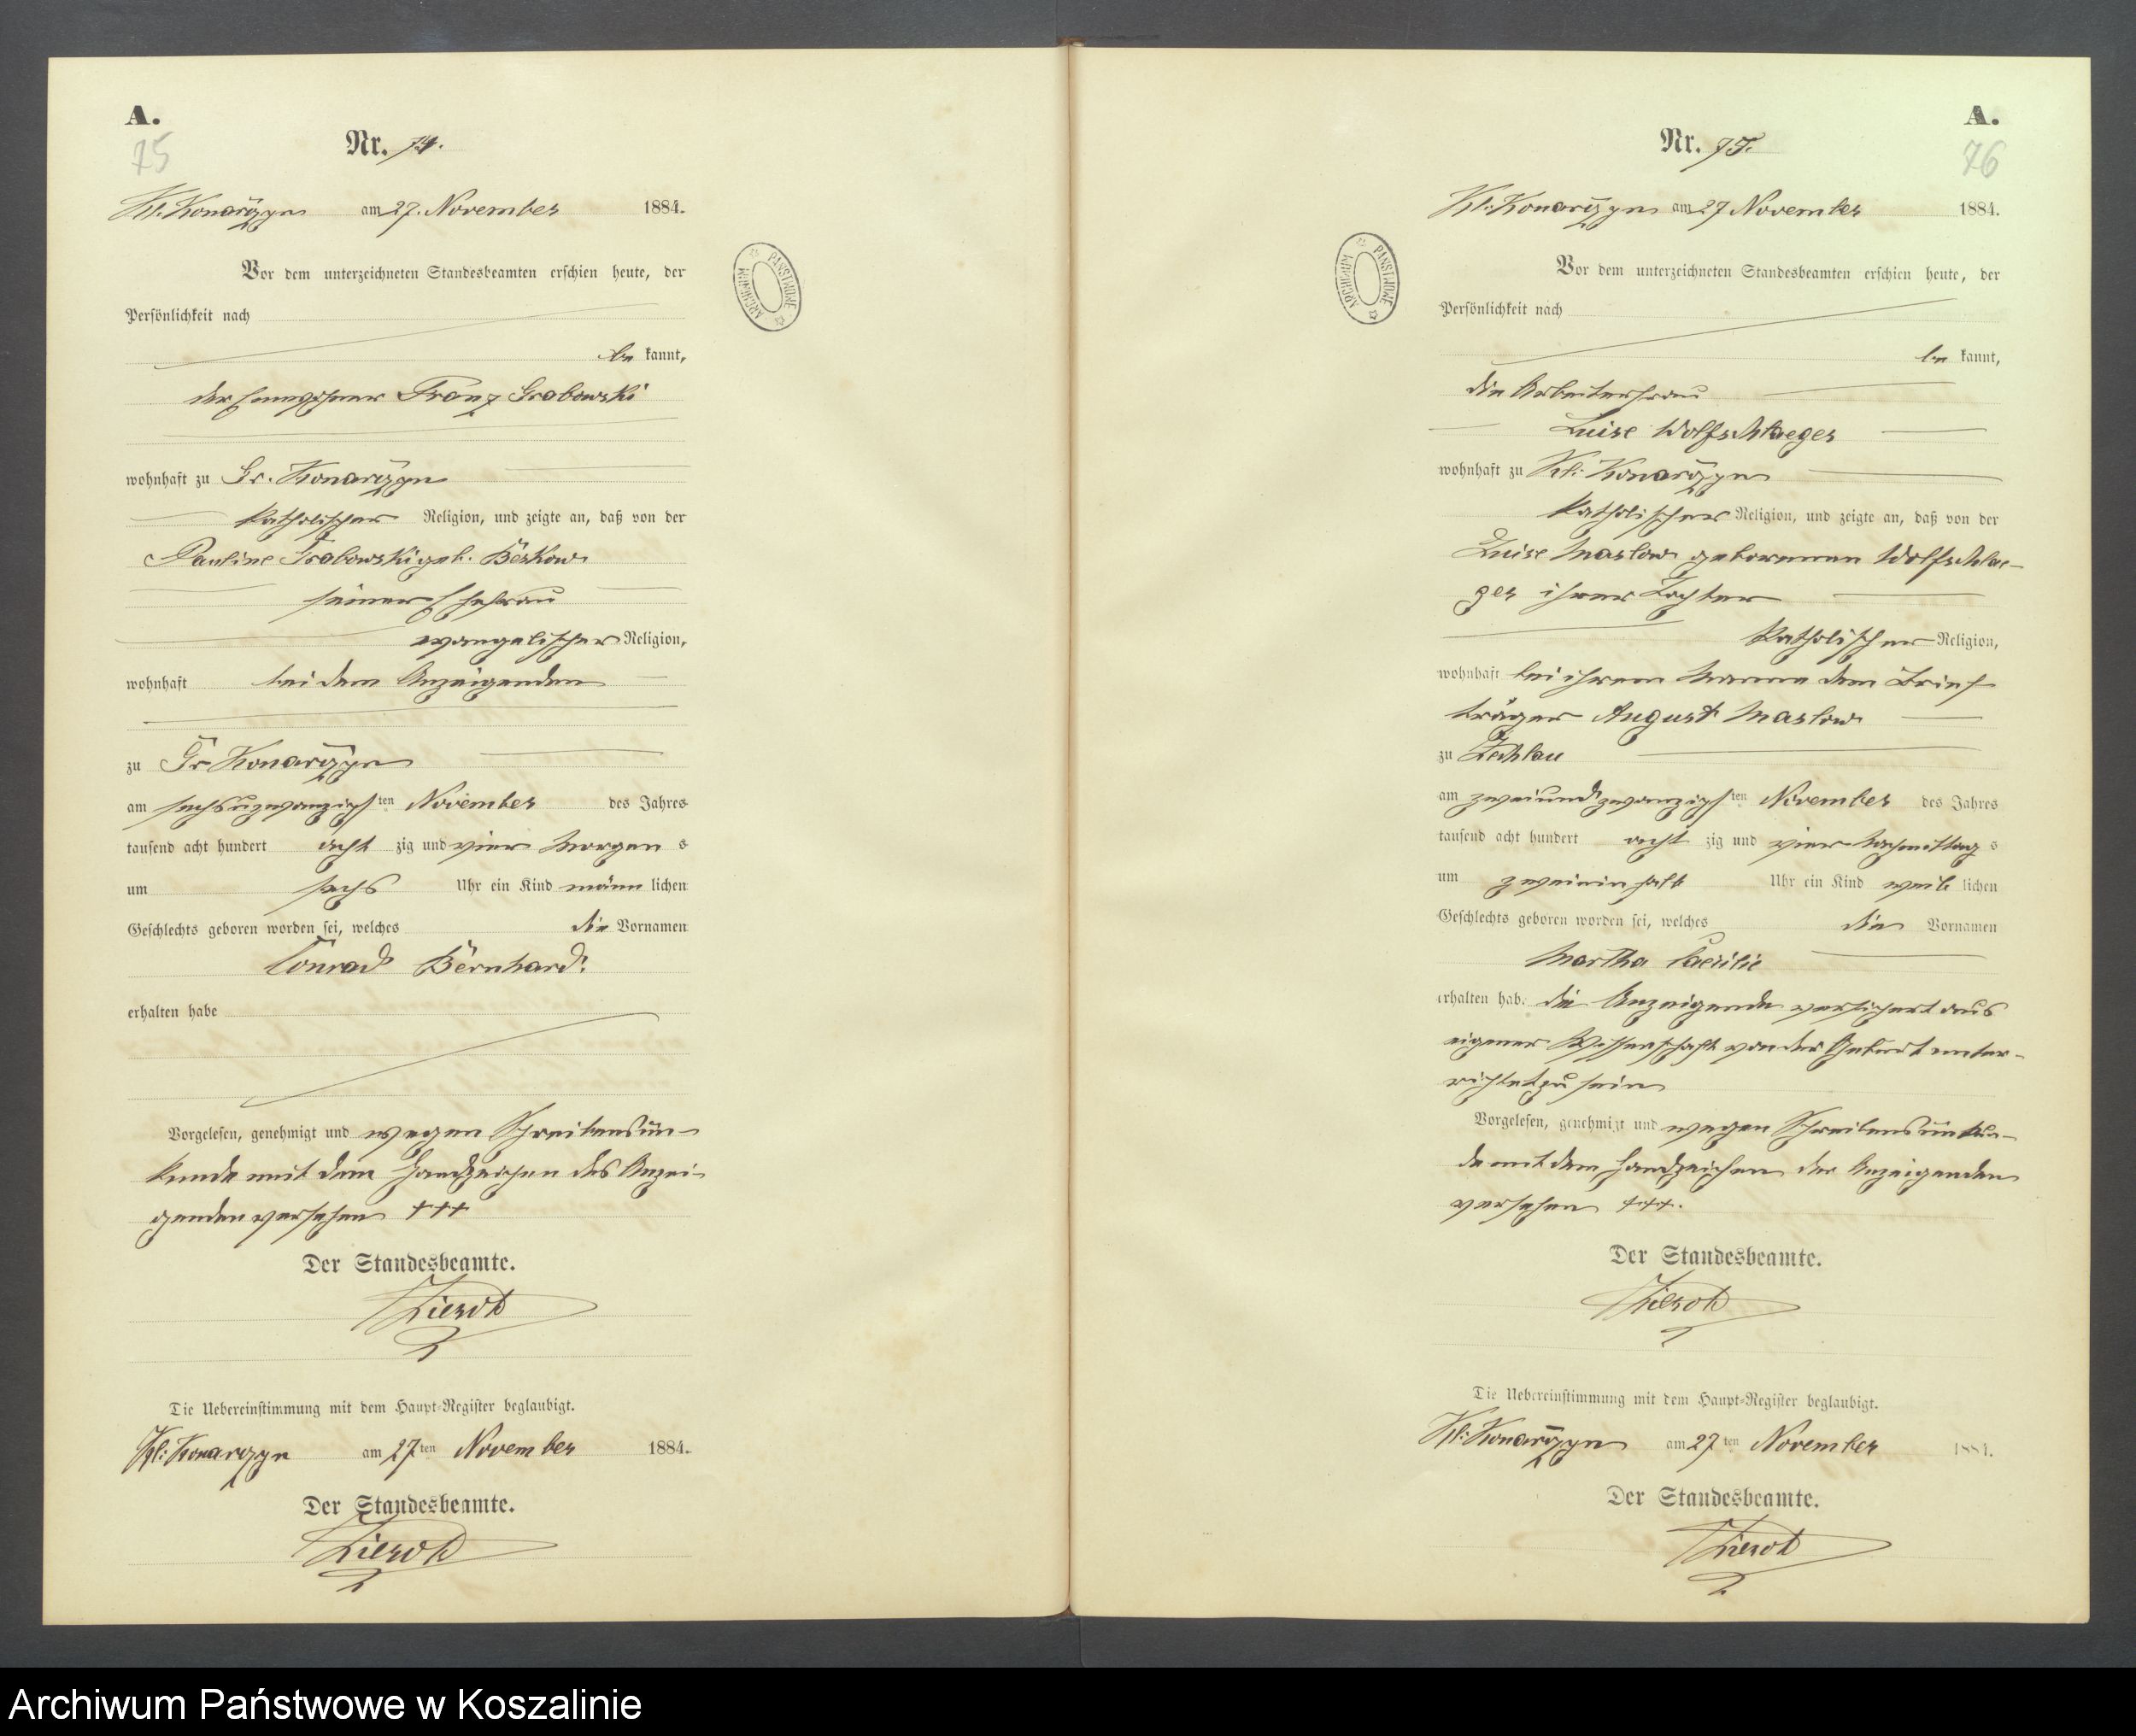 A.
75
Nr. 74.
Kl. Konarczyn am 27. November 1884.
Vor dem unterzeichneten Standesbeamten erschien heute, der
Persönlichkeit nach
be kannt,
der Franz Grabowski
wohnhaft zu Gr. Konarczyn
katholischer Religion, und zeigte an, daß von der
Pauline Grabowski geb. Beskow
seiner Ehefrau
evangelischer Religion,
wohnhaft bei dem Anzeigenden
zu Gr Konarczyn
am sechsuzwanzigsten November des Jahres
tausend acht hundert acht zig und vier Morgen s
um sechs Uhr ein Kind männ lichen
Geschlechts geboren worden sei, welches die Vornamen
Conrad Bernhard
erhalten habe
Vorgelesen, genehmigt und wegen Schreibensun-
kunde mit dem Handzeichen des Anzei-
genden versehen +++
Der Standesbeamte.
Die Uebereinstimmung mit dem Haupt-Register beglaubigt.
Kl. Konarczyn am 27ten November 1884.
Der Standesbeamte.
ARCHIWUM PAŃSTWOWE
A.
76
Nr. 75.
Kl. Konarczyn am 27 November 1884.
Vor dem unterzeichneten Standesbeamten erschien heute, der
Persönlichkeit nach
be kannt,
die Arbeiterfrau
Luise Wolfschlaeger
wohnhaft zu Kl. Konarczyn
katholischer Religion, und zeigte an, daß von der
Luise Maslow geborenen Wolfschlae-
ger ihrer Tochter
katholischer Religion,
wohnhaft bei ihrem Manne dem Brief
träger August Maslow
zu Zechlau
am zweiundzwanzigsten November des Jahres
tausend acht hundert acht zig und vier Nachmittag s
um zweieinhalb Uhr ein Kind weib lichen
Geschlechts geboren worden sei, welches die Vornamen
Martha Caecilie
erhalten hab. die Anzeigende versichert aus
eigener Wissenschaft von der Geburt unter-
richtet zu sein
Vorgelesen, genehmigt und wegen Schreibensunkun-
de mit dem Handzeichen der Anzeigenden
versehen +++.
Der Standesbeamte.
Die Uebereinstimmung mit dem Haupt-Register beglaubigt.
Kl. Konarczyn am 27ten November 1884.
Der Standesbeamte.
ARCHIWUM PAŃSTWOWE
Archiwum Państwowe w Koszalinie